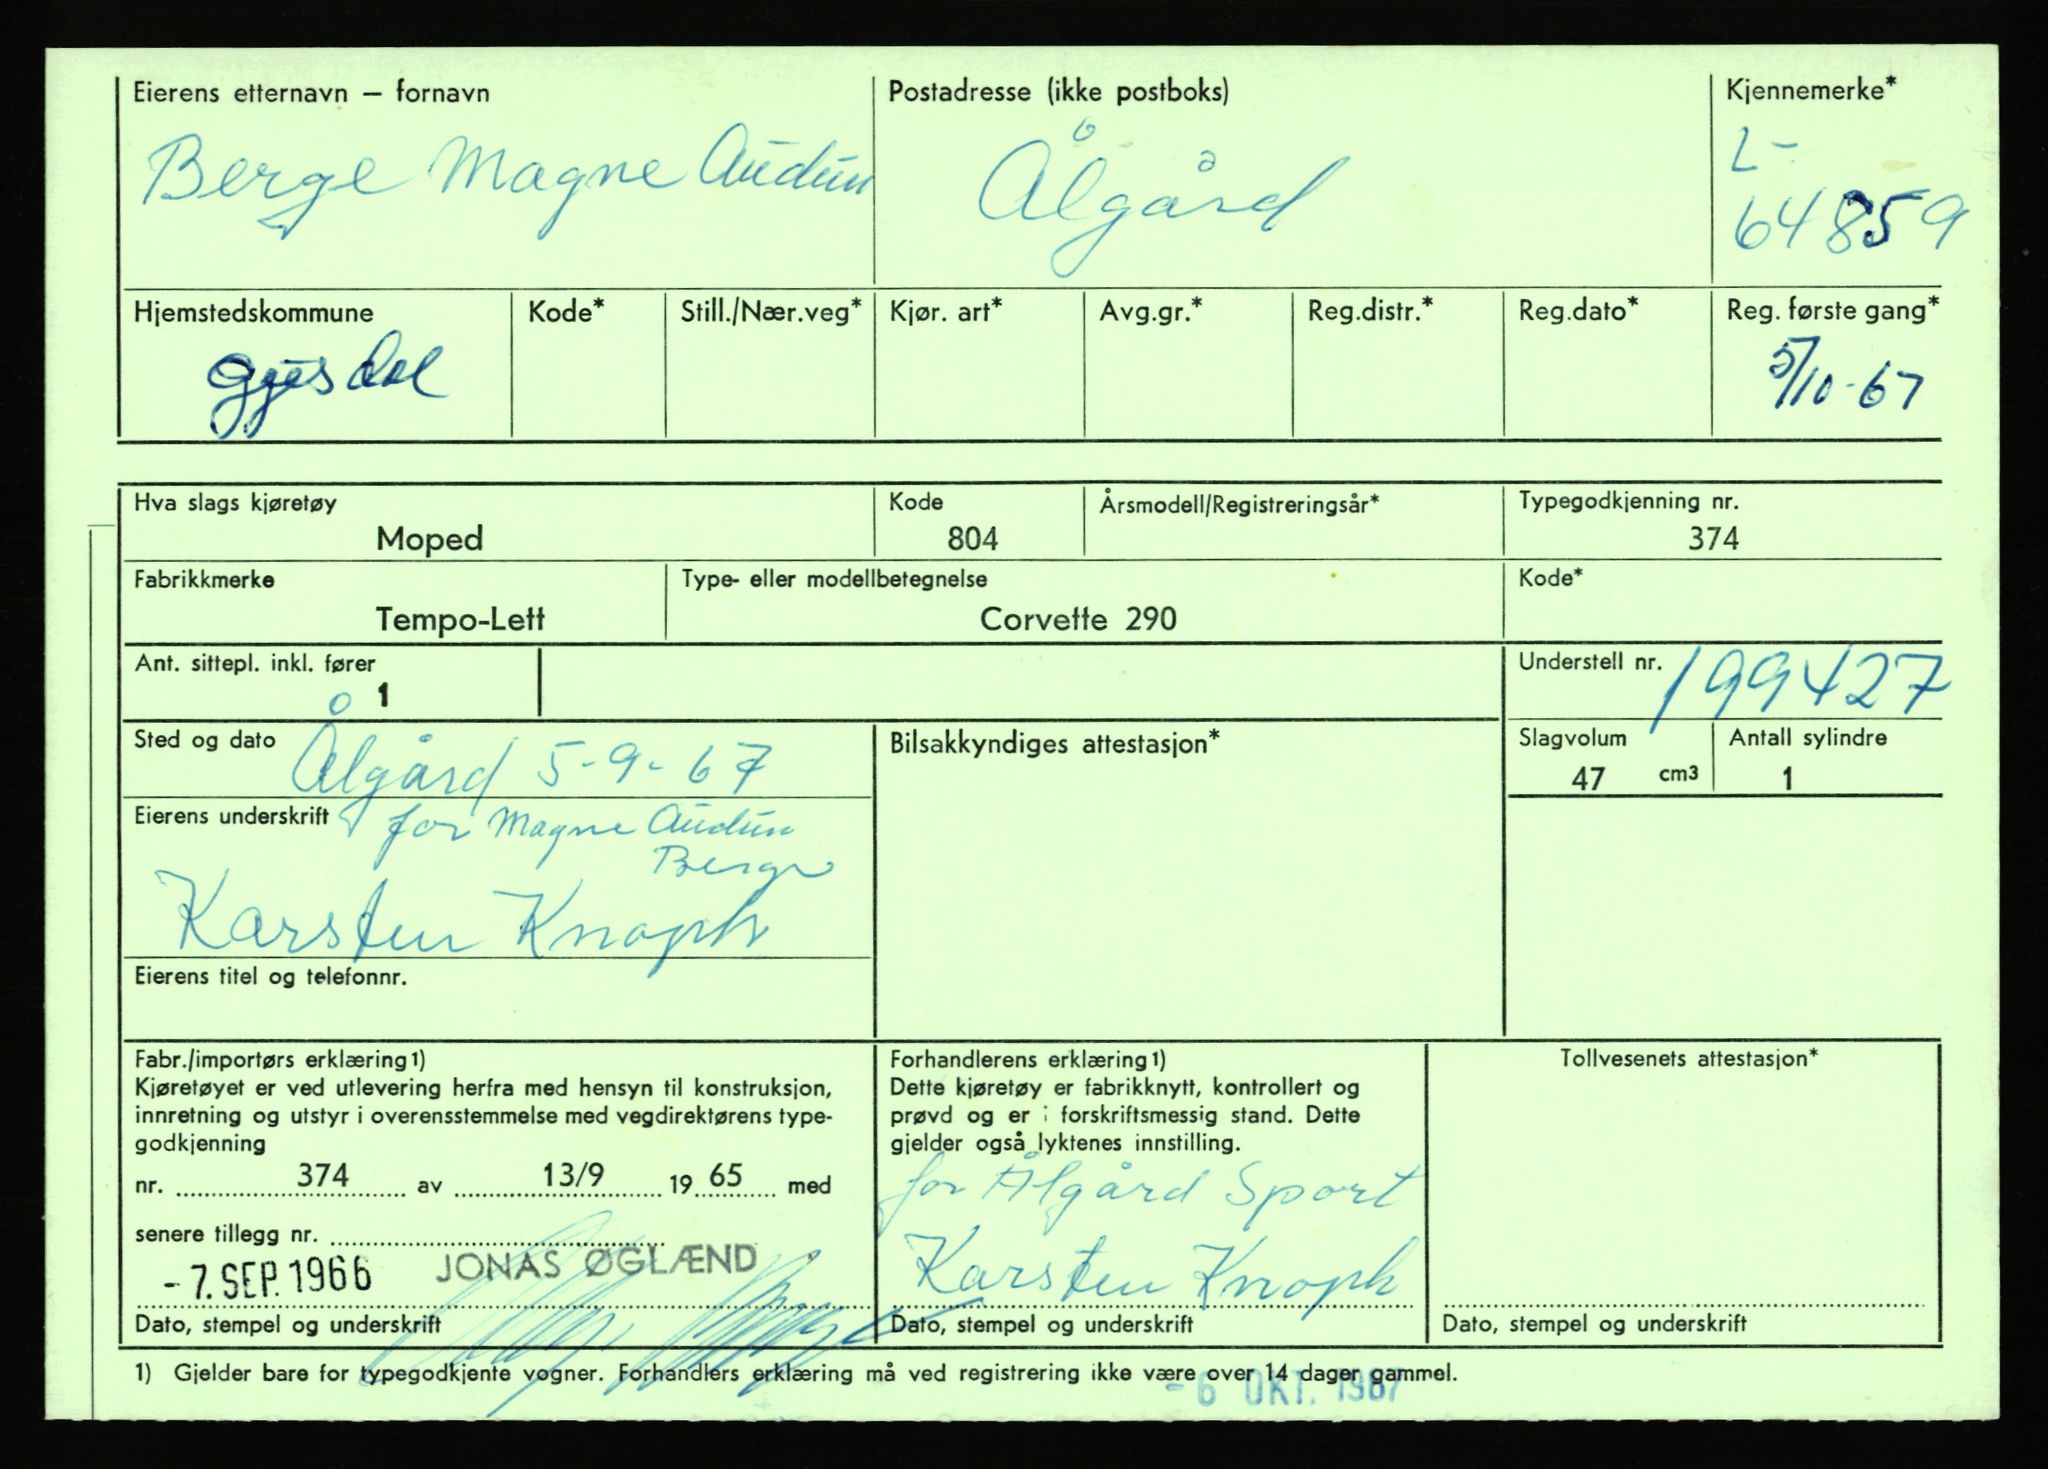 Eierens etternavn — fornavn
Postadresse (ikke postboks)
Kjennemerke*
Berge Magne Audun
Ålgård
L-
64859
Hjemstedskommune
Kode*
Still./Nær.veg*
Kjør. art*
Avg.gr.*
Reg.distr.*
Reg.dato*
Reg. første gang*
Gjesdal
5/10-67
Hva slags kjøretøy
Kode
Årsmodell/Registreringsår*
Typegodkjenning nr.
Moped
804
374
Fabrikkmerke
Type- eller modellbetegnelse
Kode*
Tempo-Lett
Corvette 290
Ant. sittepl. inkl. fører
1
Understell nr.
199427
Sted og dato
Ålgård 5-9-67
Bilsakkyndiges attestasjon*
Slagvolum
47 cm3
Antall sylindre
1
Eierens underskrift
for Magne Audun
Berge
Karsten Knoph
Eierens titel og telefonnr.
Fabr./importørs erklæring1)
Kjøretøyet er ved utlevering herfra med hensyn til konstruksjon,
innretning og utstyr i overensstemmelse med vegdirektørens type-
godkjenning
nr. 374 av 13/9 19 65 med
senere tillegg nr.
- 7. SEP. 1966
JONAS ØGLÆND
Dato, stempel og underskrift
Forhandlerens erklæring1)
Dette kjøretøy er fabrikknytt, kontrollert og
prøvd og er i forskriftsmessig stand. Dette
gjelder også lyktenes innstilling.
for Ålgård Sport
Karsten Knoph
Dato, stempel og underskrift
Tollvesenets attestasjon*
Dato, stempel og underskrift
1) Gjelder bare for typegodkjente vogner. Forhandlers erklæring må ved registrering ikke være over 14 dager gammel.
- 6 OKT. 1967